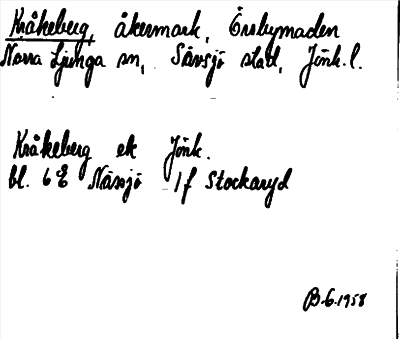 Kråkeberg, åkermark, Örsbymaden
Norra Ljunga sn, Sävsjö stad, Jönk. l.
Kråkeberg ek Jönk.
bl. 6E Nässjö 1f Stockaryd
B.6.1958